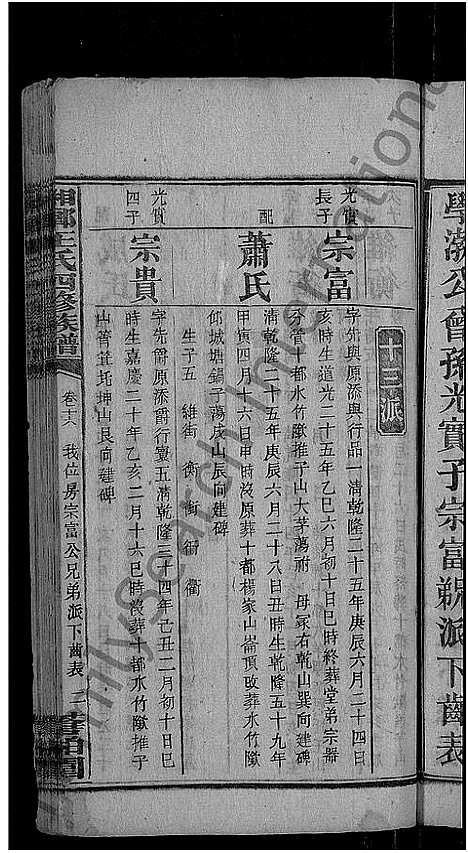 學渤公曾孫光實子宗富彜派下齒表
十三派
光實長子
宗富
字先與原添與行品一清乾隆二十五年庚辰六月二十四日
亥時生道光二十五年乙巳六月初十日巳時終葬堂弟宗器
分管十都水竹隞推子山大茅蕩祔 母冢右乾山巽向建碑
配
蕭氏
清乾隆二十五年庚辰六月二十八日丑時生乾隆五十九年
甲寅四月十六日申時沒原葬十都楊家山崙頂改葬水竹隞
邱城塘鍋子蕩戌山辰向建碑
生子五 維街 衡 衝 衢
光實四子
宗貴
字先爵原添爵行寶五清乾隆三十四年己丑二月初十日巳
時生嘉慶二十年乙亥二月十六巳時沒葬十都水竹隞推子
山管坤山艮向建碑
湘鄉王氏四修族譜
卷十六
我位房宗富公兄弟派下齒表
二
FamilySearch International